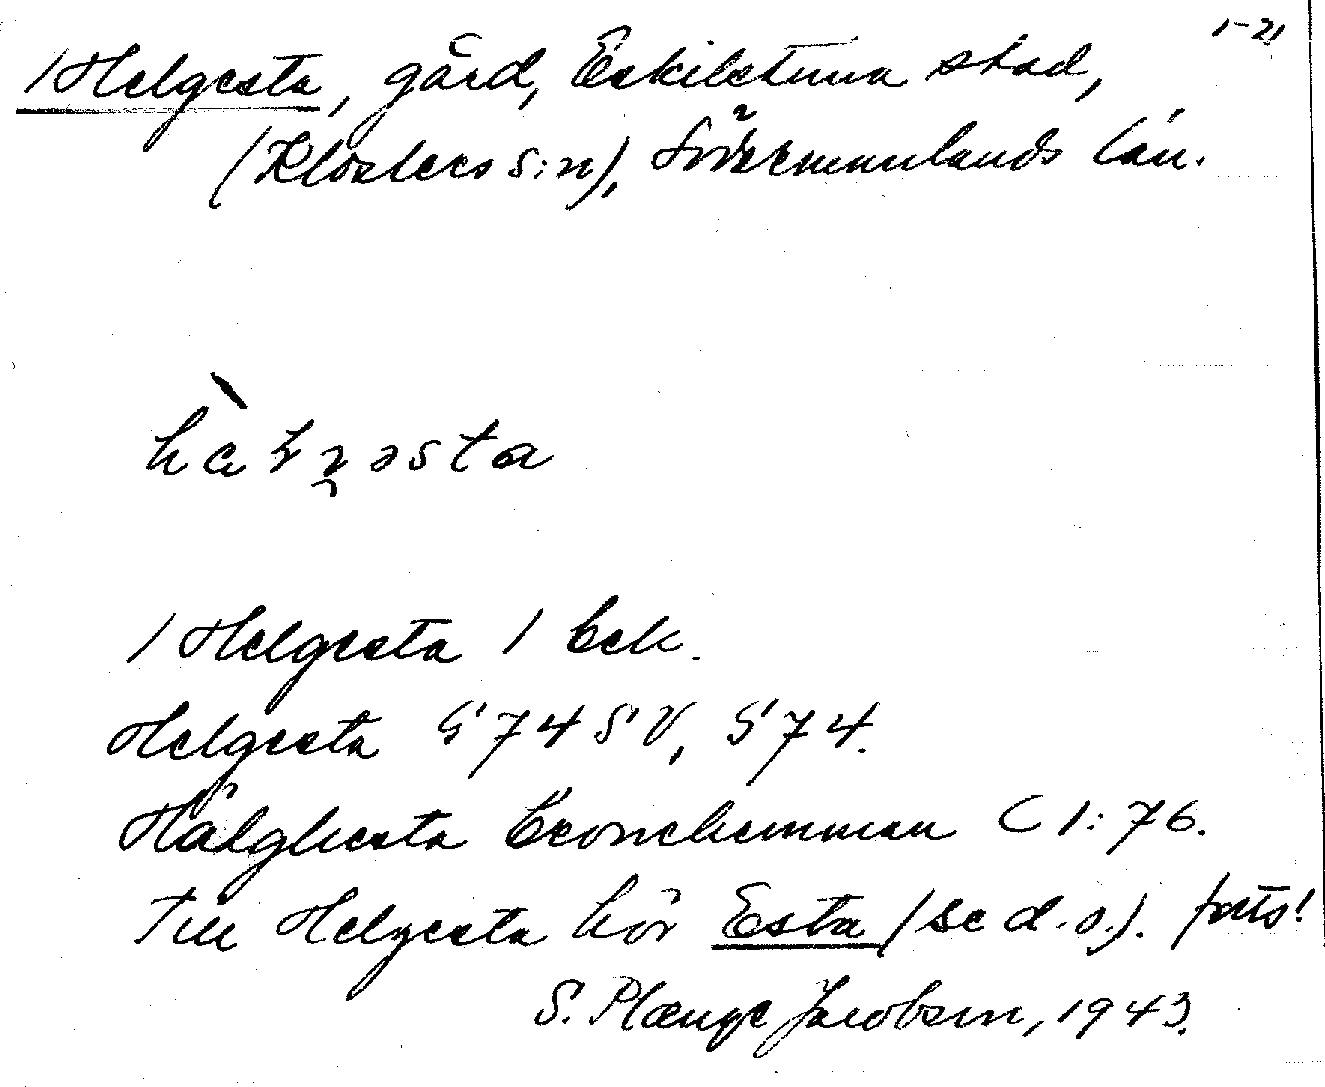 1-21
1 Helgesta, gård, Eskilstuna stad,
(Klosters s:n), Södermanlands län.
1 Helgesta 1 bek.
Helgesta G 74 SV, G 74.
Hälghesta Crono hemman C 1:76.
Till Helgesta hör Esta (se d. o.). forts!
S. Plænge Jacobson, 1943.